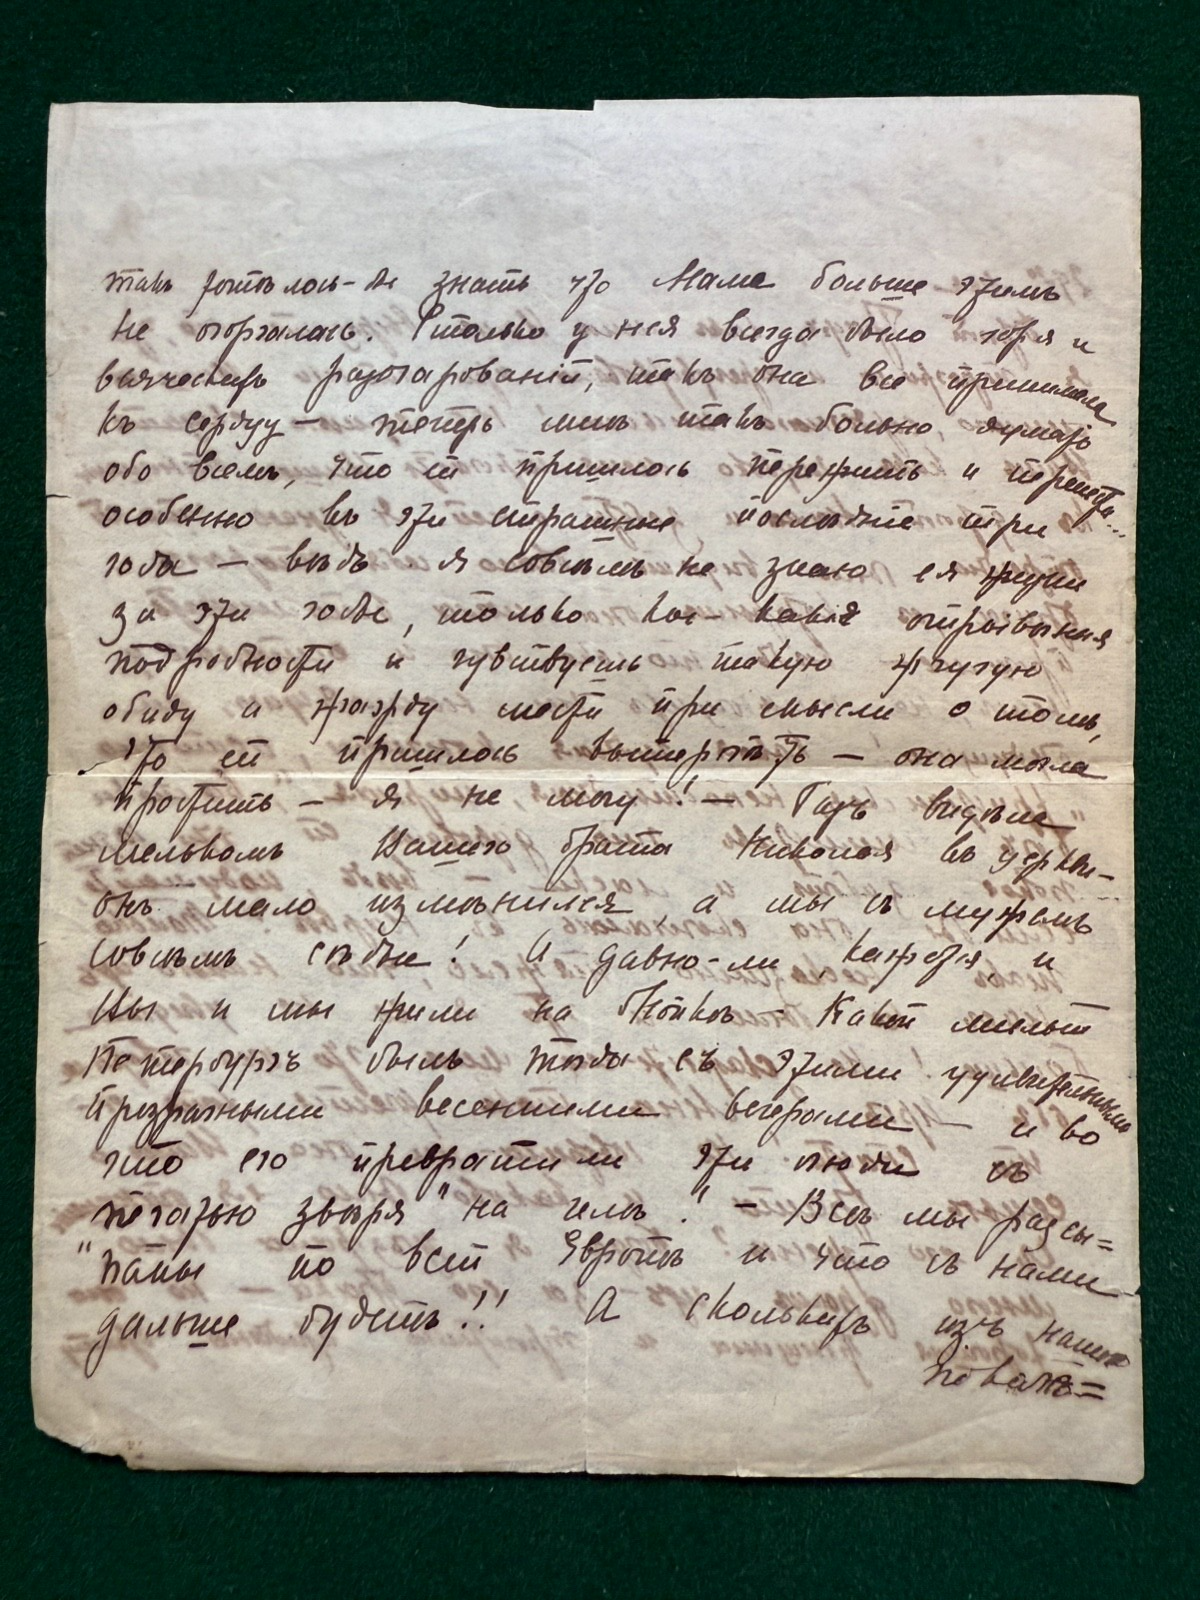 такъ хотѣлось-бы знать что Мама больше этимъ
не огорчалась. Столько у нея всегда было горя и
всяческихъ разочарованiй, такъ она все принимала
къ сердцу — теперь мнѣ такъ больно думать
обо всемъ, что ей пришлось пережить и перенести...
особенно въ эти страшные послѣднiе три
года — вѣдь я совсѣмъ не знаю ея жизни
за эти годы, только кое-какiя отрывочныя
подробности и чувствуешь такую жгучую
обиду и жажду мести при мысли о томъ,
что ей пришлось вытерпѣть — она могла
простить — я не могу! — Разъ видѣла
мелькомъ Вашего брата Николая въ церкви —
онъ мало измѣнился, а мы съ мужемъ
совсѣмъ сѣдые! А давно-ли, кажется, и
Вы и мы жили на Мойкѣ — Какой милый
Петербургъ былъ тогда съ этими удивительными
прозрачными весенними вечерами — и во
что его превратили эти люди съ
печатью звѣря "на челѣ"! — Всѣ мы разсы=
"паны по всей Европѣ и что съ нами
дальше будетъ!! А сколькихъ изъ нашихъ